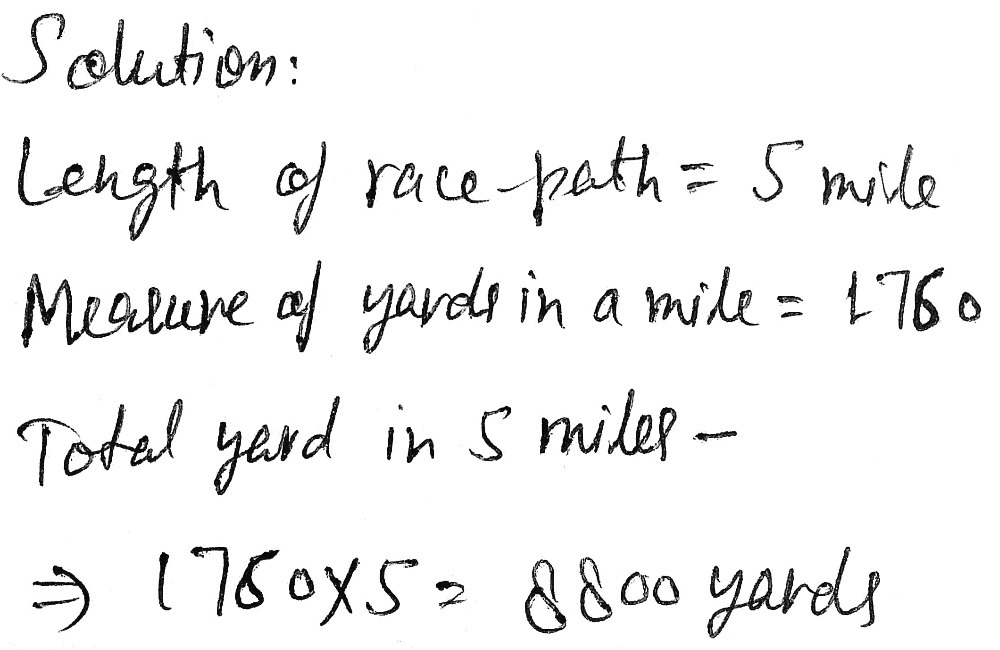 Solution:
Length of race path = 5 mile
Measure of yards in a mile = 1760
Total yard in 5 miles -
⇒ 1760X5 = 8800 yards